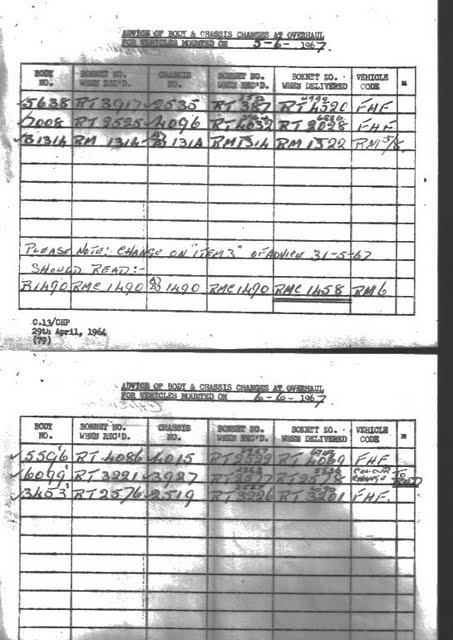 ADVICE OF BODY & CHASSIS CHANGES AT OVERHAUL
FOR VEHICLES MOUNTED ON 5-6- 1967.
BODY NO. BONNET NO. WHEN REC'D. CHASSIS NO. BONNET NO. WHEN REC'D. BONNET NO. WHEN DELIVERED VEHICLE CODE
✓5638 RT 3917 ✓2535 RT 387 RT 4520 FHF
✓7008 RT 2525 ✓4096 RT 4032 RT 2028 FHF
✓B1314 RM 1314 ✓B1314 RM1314 RM 1322 RM 5/8
PLEASE NOTE: CHANGE ON "ITEM 3" OF ADVICE 31-5-67
SHOULD READ:-
B1490 RMC 1490 B1490 RMC 1490 RMC 1458 RM6
C.13/CHP
29th April, 1964
(79)
ADVICE OF BODY & CHASSIS CHANGES AT OVERHAUL
FOR VEHICLES MOUNTED ON 6-6- 1967
BODY NO. BONNET NO. WHEN REC'D. CHASSIS NO. BONNET NO. WHEN REC'D. BONNET NO. WHEN DELIVERED VEHICLE CODE
✓5506 RT 4086 ✓4015 RT RT FHF
✓6099 RT 3221 ✓3927 RT RT 2578 COLOUR CHANGE TO
✓3453 RT 2576 ✓2519 RT 3226 RT 3201 FHF.